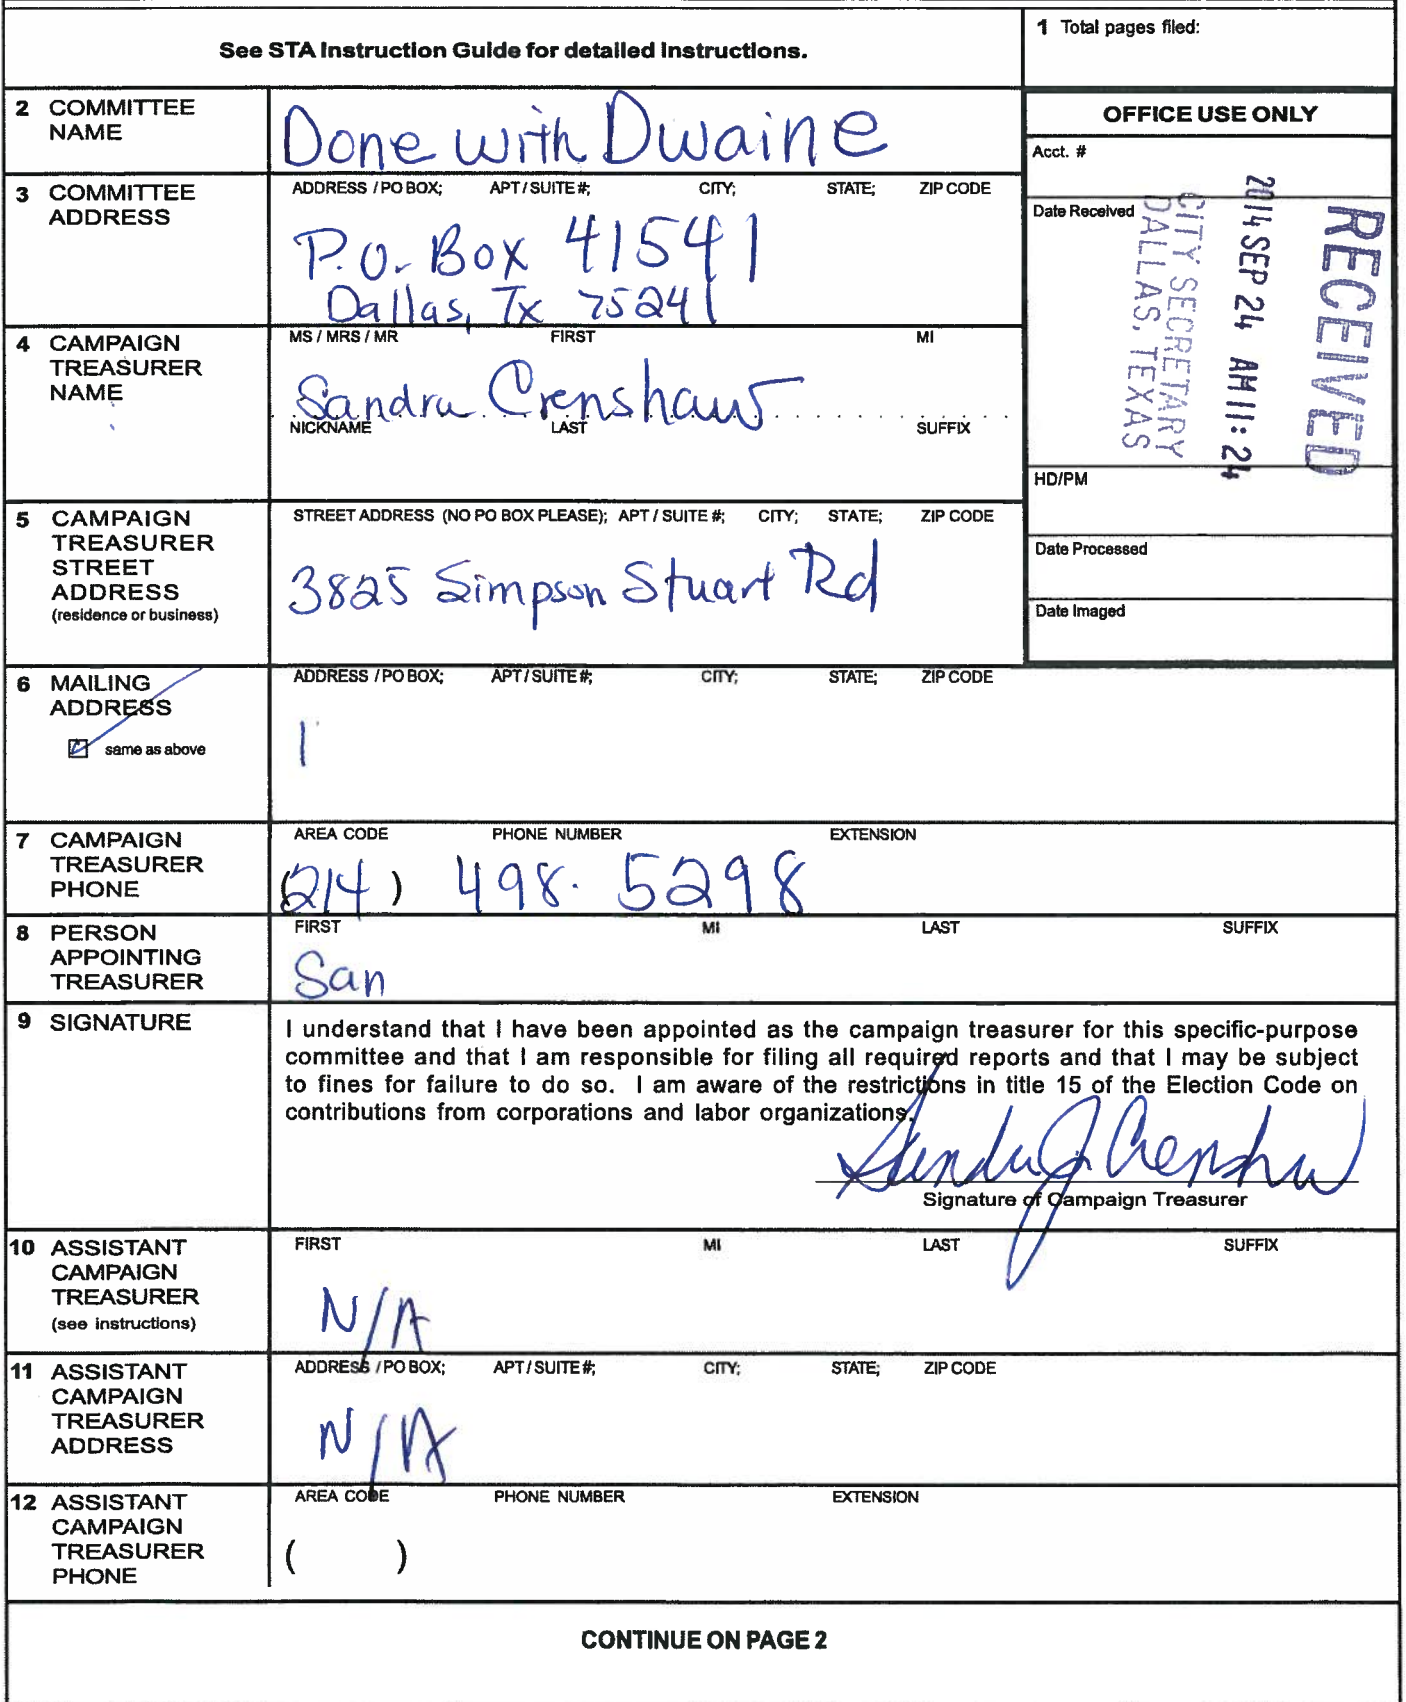 See STA Instruction Guide for detailed Instructions.
1 Total pages filed:
2 COMMITTEE NAME
Done with Dwaine
OFFICE USE ONLY
Acct. #
Date Received
RECEIVED
2014 SEP 24 AM 11:24
CITY SECRETARY
DALLAS, TEXAS
HD/PM
Date Processed
Date Imaged
3 COMMITTEE ADDRESS
ADDRESS / PO BOX; APT / SUITE #; CITY; STATE; ZIP CODE
P.O. Box 41541
Dallas, Tx 75241
4 CAMPAIGN TREASURER NAME
MS / MRS / MR FIRST MI
Sandra Crenshaw
NICKNAME LAST SUFFIX
5 CAMPAIGN TREASURER STREET ADDRESS
(residence or business)
STREET ADDRESS (NO PO BOX PLEASE); APT / SUITE #; CITY; STATE; ZIP CODE
3825 Simpson Stuart Rd
6 MAILING ADDRESS
same as above
ADDRESS / PO BOX; APT / SUITE #; CITY; STATE; ZIP CODE
7 CAMPAIGN TREASURER PHONE
AREA CODE PHONE NUMBER EXTENSION
(214) 498. 5298
8 PERSON APPOINTING TREASURER
FIRST MI LAST SUFFIX
San
9 SIGNATURE
I understand that I have been appointed as the campaign treasurer for this specific-purpose
committee and that I am responsible for filing all required reports and that I may be subject
to fines for failure to do so. I am aware of the restrictions in title 15 of the Election Code on
contributions from corporations and labor organizations.
Sandra J Crenshaw
Signature of Campaign Treasurer
10 ASSISTANT CAMPAIGN TREASURER
(see instructions)
FIRST MI LAST SUFFIX
N/A
11 ASSISTANT CAMPAIGN TREASURER ADDRESS
ADDRESS / PO BOX; APT / SUITE #; CITY; STATE; ZIP CODE
N/A
12 ASSISTANT CAMPAIGN TREASURER PHONE
AREA CODE PHONE NUMBER EXTENSION
( )
CONTINUE ON PAGE 2